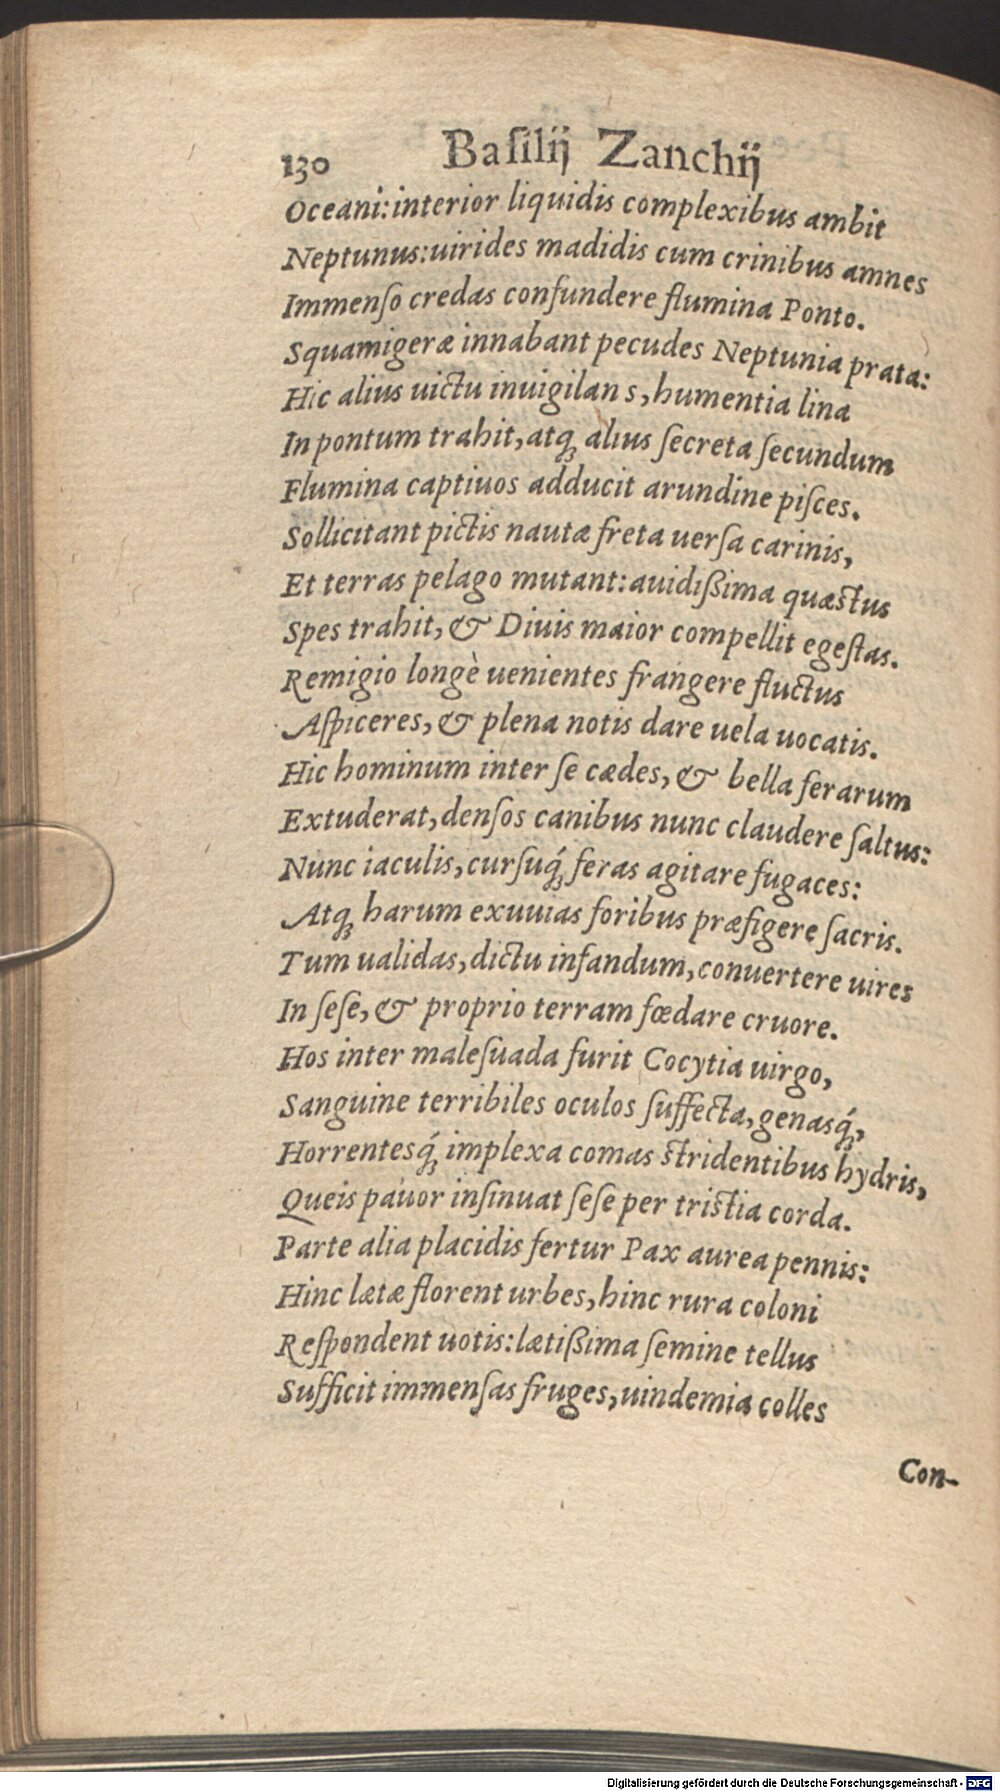 130 Baſilij Zanchij
Oceani:interior liquidis complexibus ambit
Neptunus:uirides madidis cum crinibus amnes
Immenſo credas confundere flumina Ponto.
Squamigeræ innabant pecudes Neptunia prata:
Hic alius uictu inuigilans,humentia lina
In pontum trahit,atq; alius ſecreta ſecundum
Flumina captiuos adducit arundine piſces.
Sollicitant pictis nautæ freta uerſa carinis,
Et terras pelago mutant:auidißima quæstus
Spes trahit,& Diuis maior compellit egeſtas.
Remigio longè uenientes frangere fluctus
Aſpiceres,& plena notis dare uela uocatis.
Hic hominum inter ſe cædes,& bella ferarum
Extuderat,denſos canibus nunc claudere ſaltus:
Nunc iaculis,curſuq́; feras agitare fugaces:
Atq; harum exuuias foribus præfigere ſacris.
Tum ualidas,dictu infandum,conuertere uires
In ſeſe,& proprio terram fœdare cruore.
Hos inter maleſuada furit Cocytia uirgo,
Sanguine terribiles oculos ſuffecta,genasq́;,
Horrentesq́; implexa comas stridentibus hydris,
Queis pauor inſinuat ſeſe per tristia corda.
Parte alia placidis fertur Pax aurea pennis:
Hinc lætæ florent urbes,hinc rura coloni
Reſpondent uotis:lætißima ſemine tellus
Sufficit immenſas fruges,uindemia colles
Con-
Digitalisierung gefördert durch die Deutsche Forschungsgemeinschaft - DFG